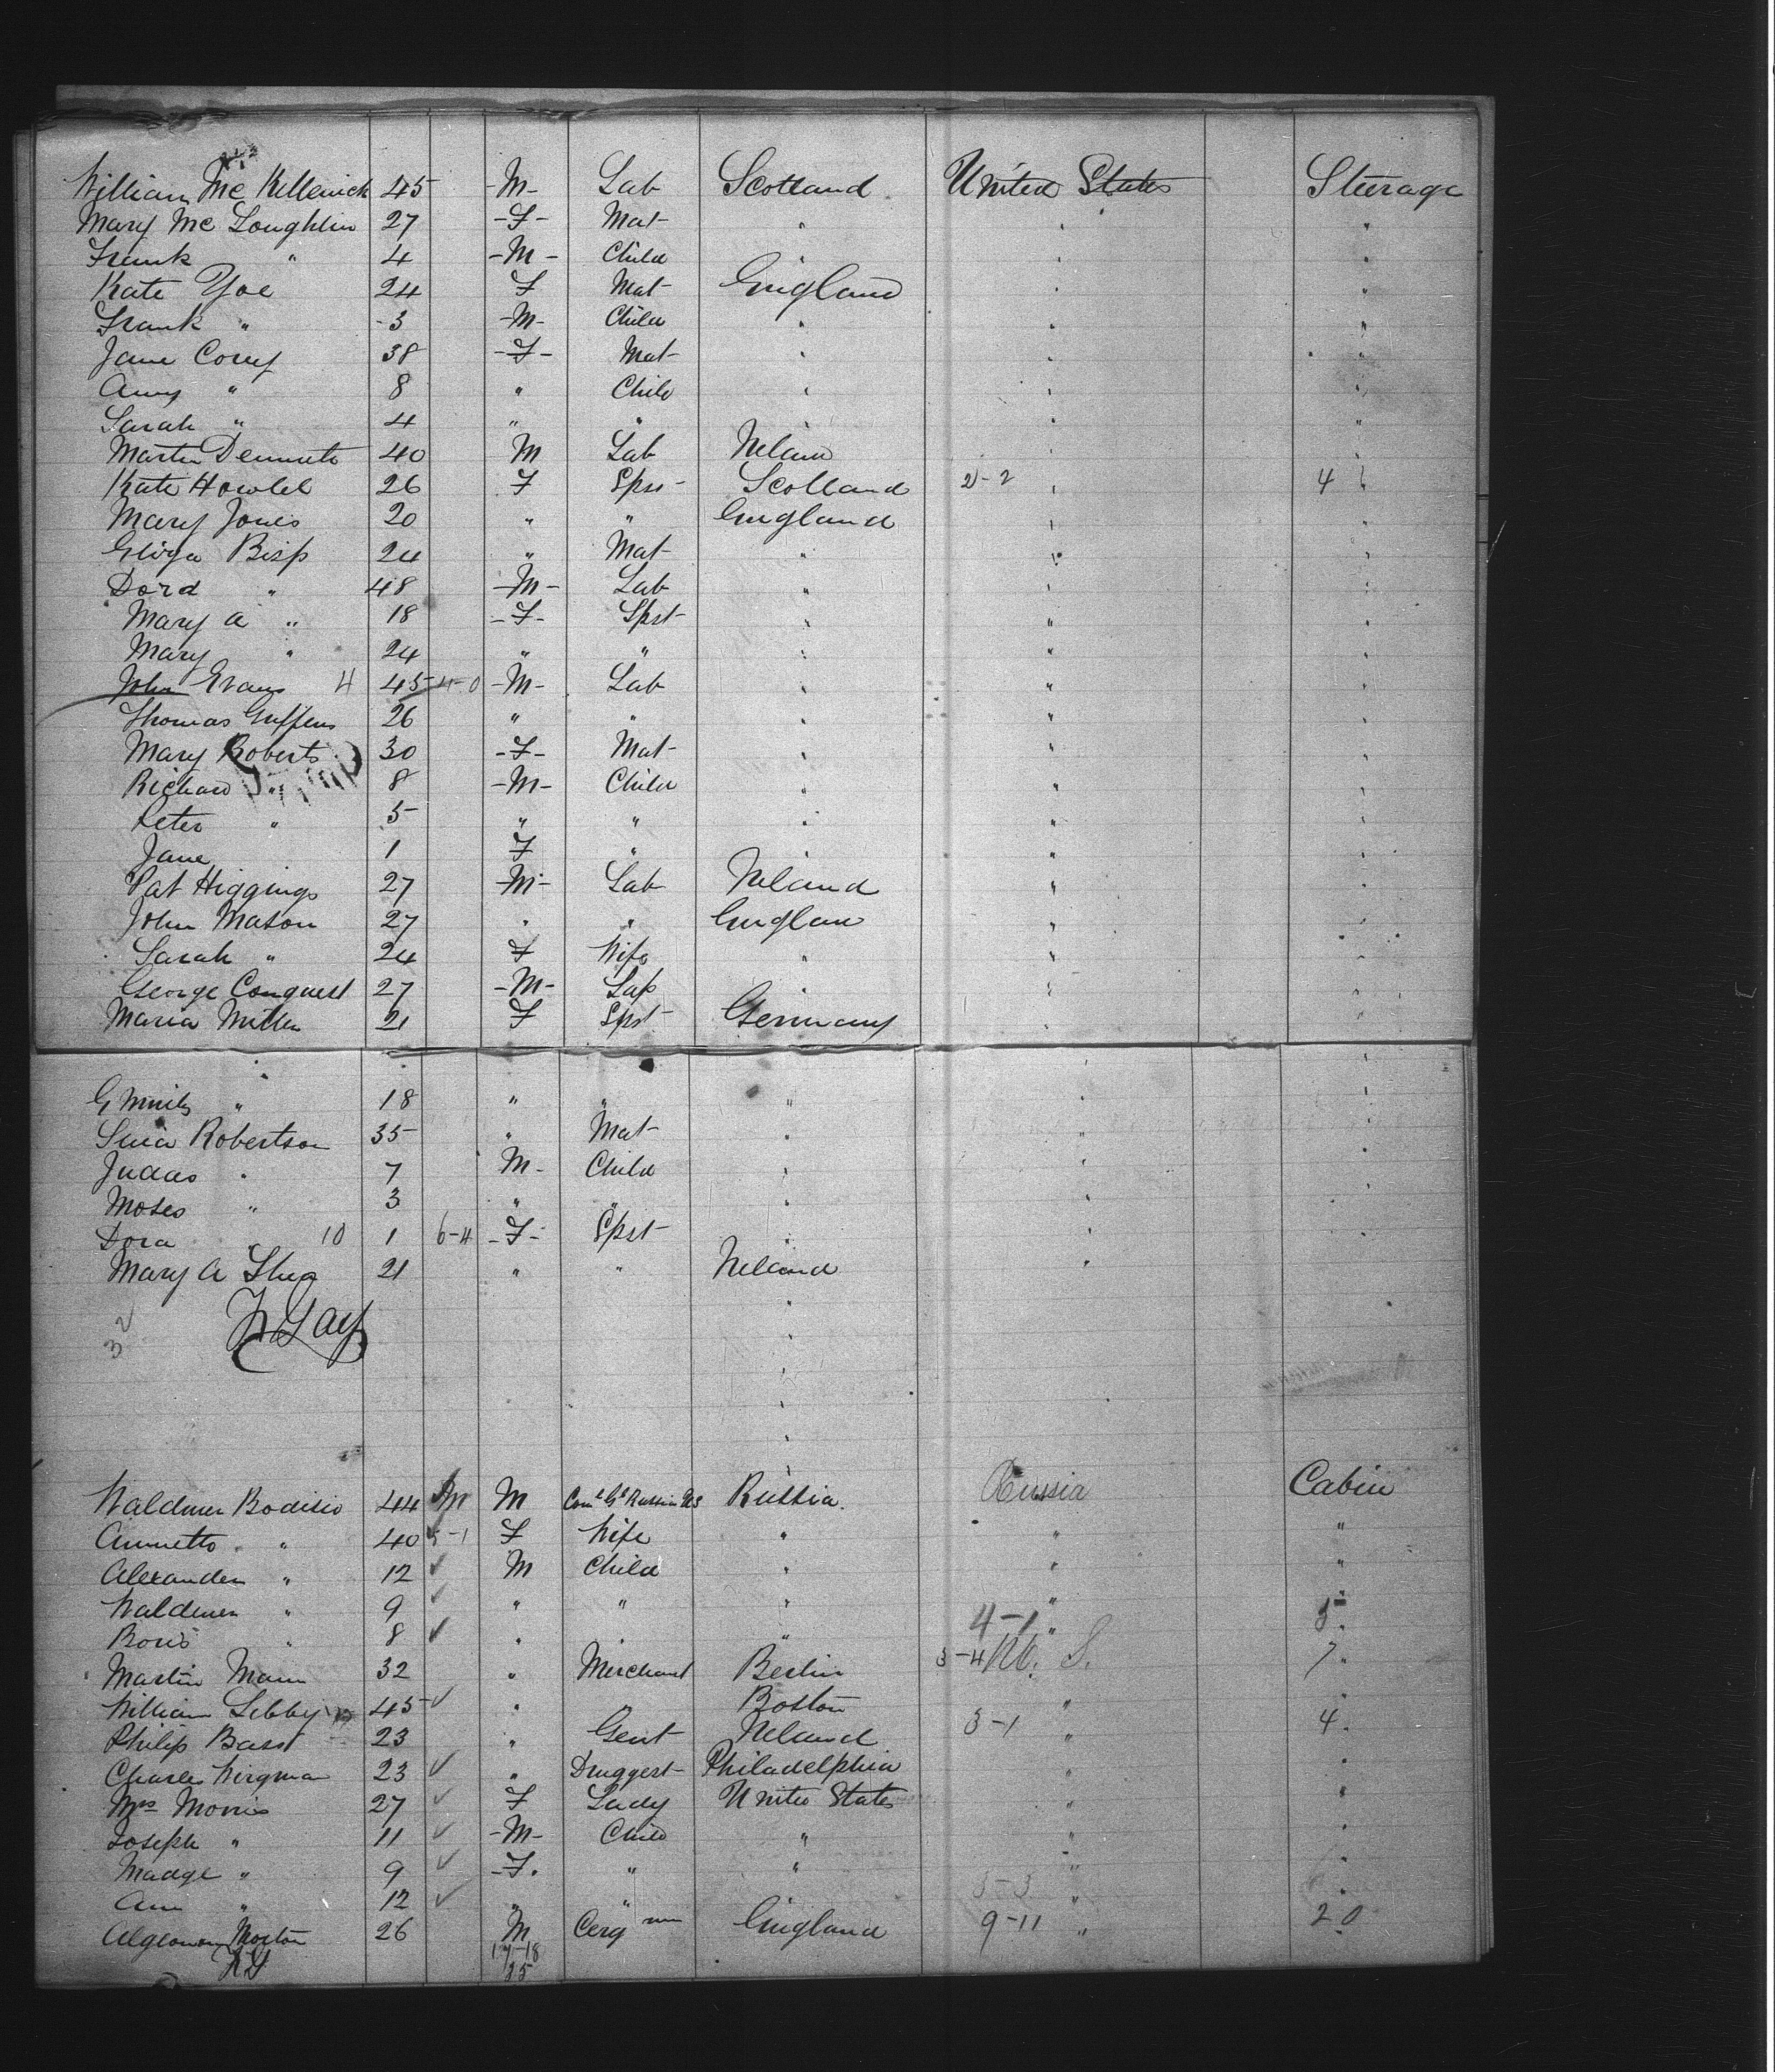 William Mc Killenick 45 -M- Lab Scotland United States Steerage
Mary Mc Loughlin 27 -F- Mat " " "
Frank " 4 -M- Child " " "
Kate Yoe 24 F Mat England " "
Frank " 3 -M- Child " " "
Jane Corey 38 -F- Mat " " "
Amy " 8 " Child " " "
Sarah " 4 " " " " "
Martin 40 M Lab Ireland " "
Kate Howlet 26 F Spst Scotland 2-2 " 4 "
Mary Jones 20 " " England " "
Eliza Bisp 24 " Mat " " "
Dord " 48 -M- Lab " " "
Mary A " 18 -F- Spst " " "
Mary " 24 " " " " "
John Evans 4 45 4-0 -M- Lab " " "
Thomas 26 " " " " "
Mary Roberts 30 -F- Mat " " "
Richard " 8 -M- Child " " "
Peter " 5 " " " " "
Jane 1 F " " " "
Pat Higgings 27 -M- Lab Ireland " "
John Mason 27 " " Englan " "
Sarah " 24 F Wife " " "
George Conquest 27 -M- Lab " " "
Maria Miller 21 F Spst Germany " "
Emily " 18 " " " " "
Robertson 35 " Mat " " "
Judas " 7 M- Child " " "
Moses " 3 " " " " "
Dora " 10 1 6-4 -F- Spst " " "
Mary A 21 " " Ireland "
32
Waldmer Bodisio 44 M Conl Gl Russia US Russia Russia Cabin
Annetto " 40 5-1 F Wife " " "
Alexander " 12 M Child " " "
Waldmer " 9 " " " "
Boris " 8 " " " 4-1 " 5
Martin Mann 32 " Merchant Berlin 3-4 U. S. 7 "
William Libby 45 " Boston " "
Philip Bass 23 " Gent Ireland 3-1 " 4
Charles Wirgman 23 " Druggest Philadelphia " "
Mrs Morris 27 F Lady United States " "
Joseph " 11 -M- Child " " "
Madge " 9 -F- " " " "
Ann " 12 " " 3-3 " "
Algernon Morton 26 M England 9-11 " 20
17-18
35